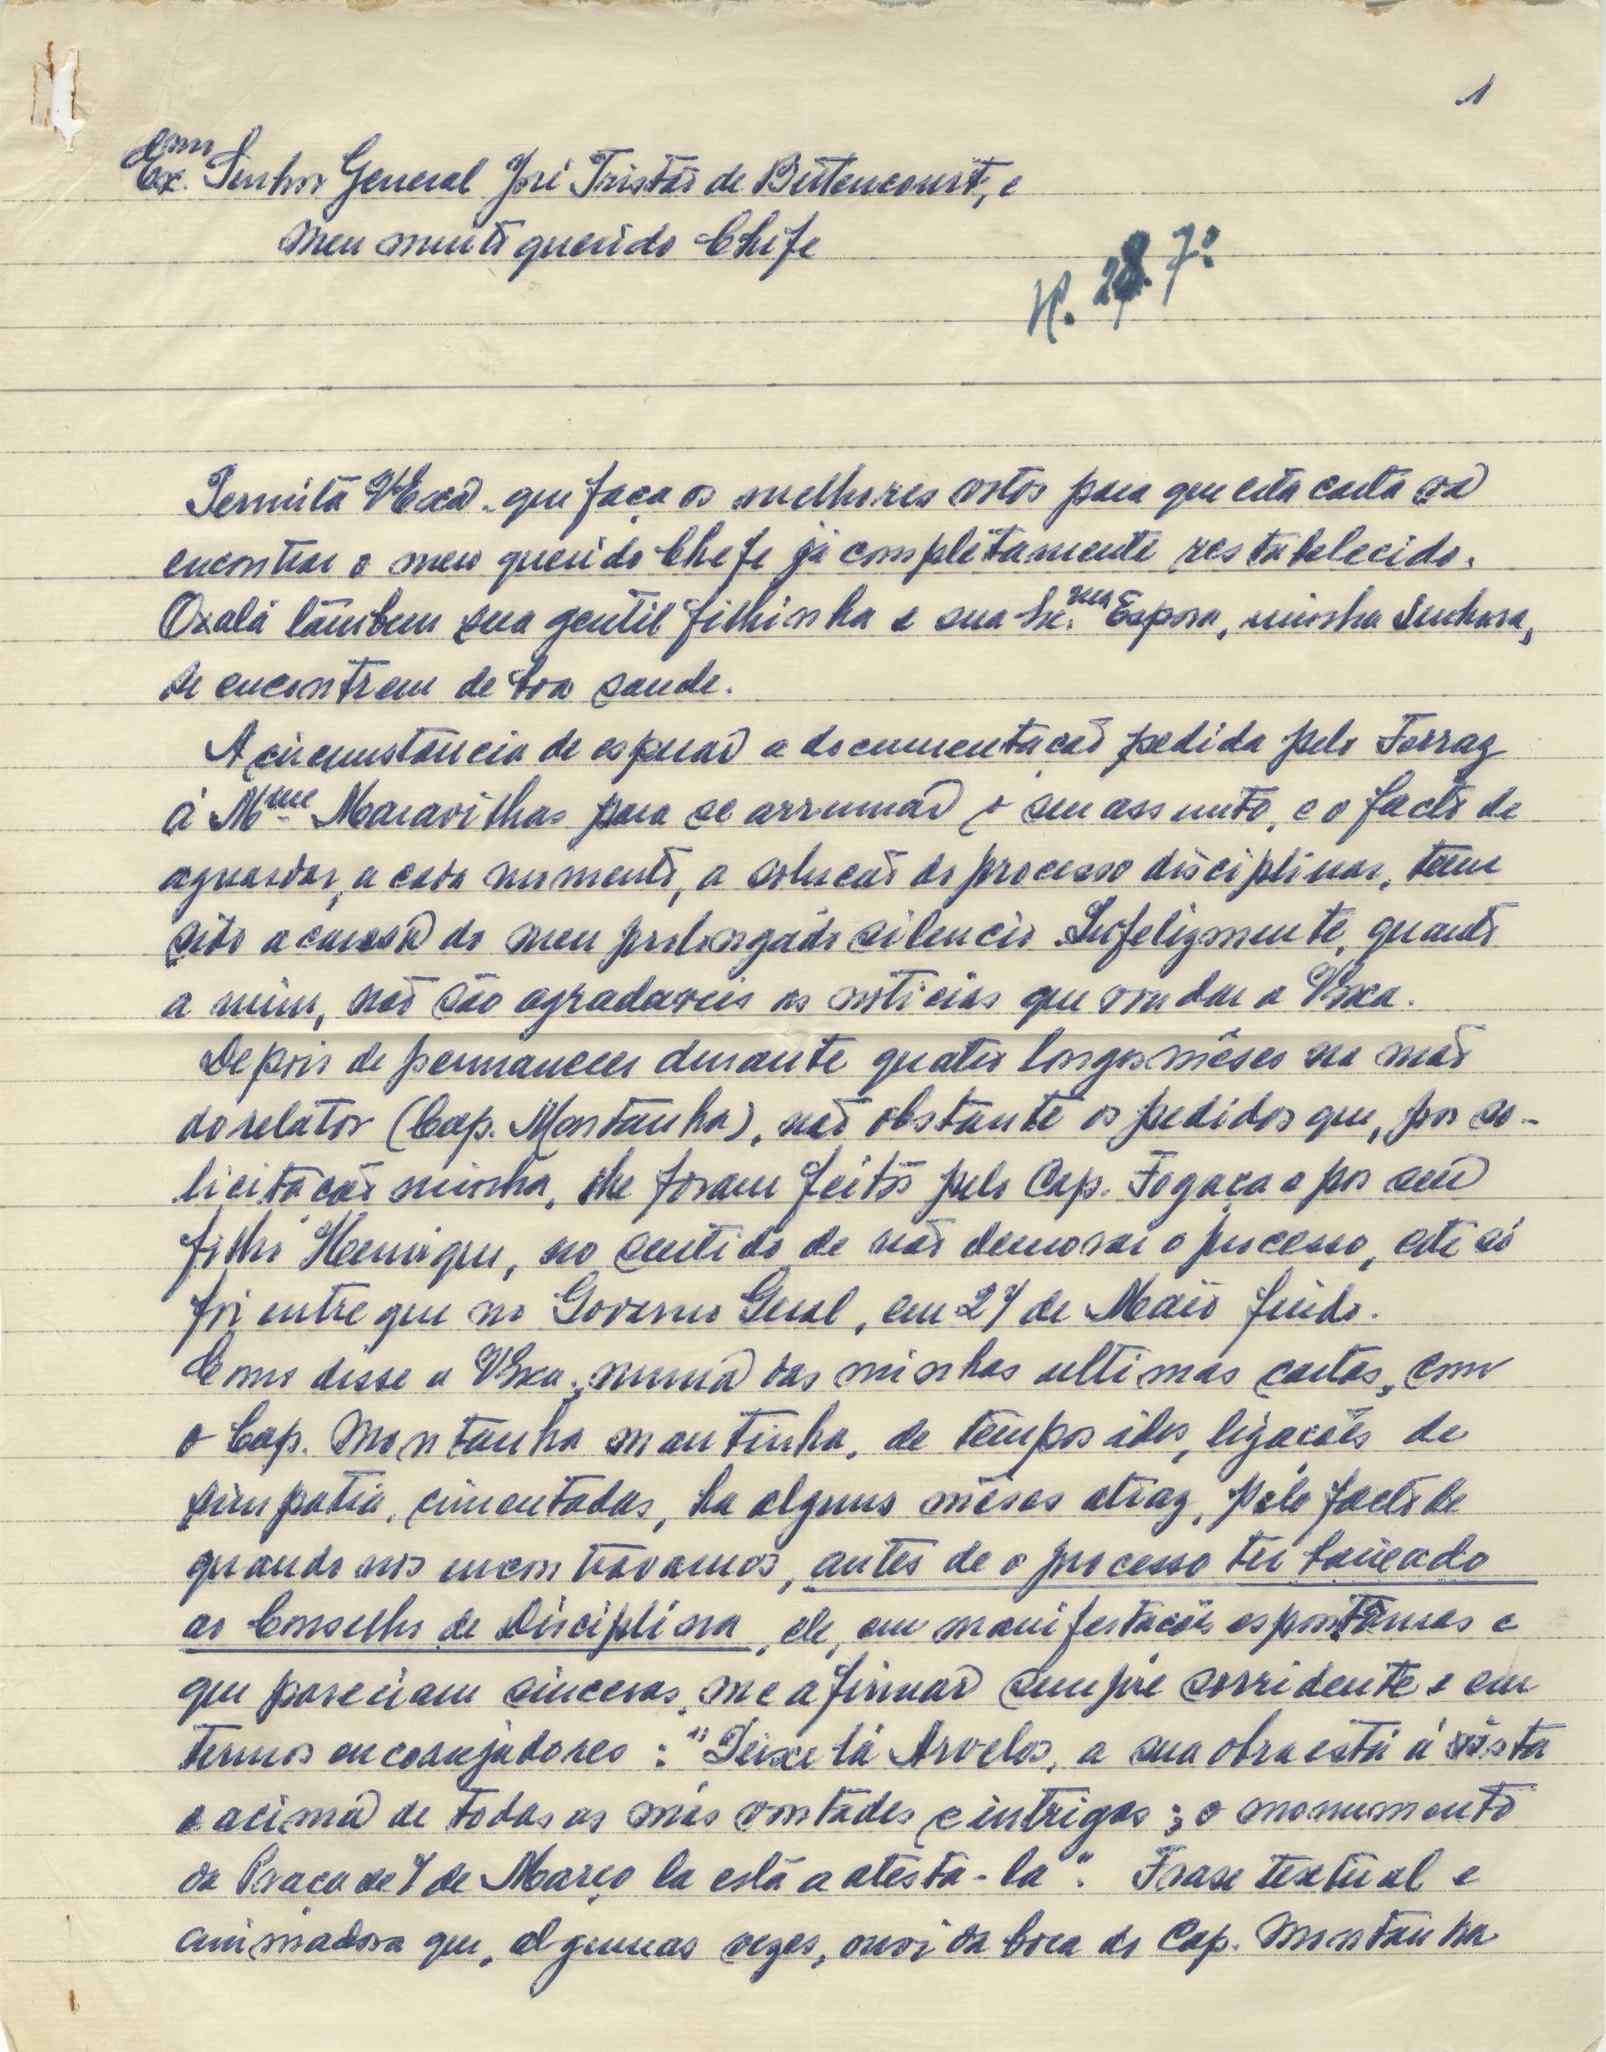 1
Exmo. Senhor General José Tristão de Bettencourt, e
Meu muito querido Chefe
R. 28.7º
Permita VExa. que faça os melhores votos para que esta carta vá
encontrar o meu querido Chefe já completamente restabelecido.
Oxalá tambem sua gentil filhinha e sua Ex.ma Esposa, minha Senhora,
se encontrem de boa saude.
A circunstancia de esperar a documentação pedida pelo Ferraz
á Mme Maravilhas para se arrumar o seu assunto, e o facto de
aguardar, a cada momento, a solução do processo disciplinar, teem
sido a causa do meu prolongado silencio. Infelizmente, quanto
a mim, não são agradaveis as noticias que vou dar a VExa.
Depois de permanecer durante quatro longos mêses na mão
do relator (Cap. Montanha), não obstante os pedidos que, por so-
licitação minha, lhe foram feitos pelo Cap. Fogaça e por seu
filho Henrique, no sentido de não demorar o processo, este só
foi entregue no Governo Geral, em 27 de Maio findo.
Como disse a VExa., numa das minhas ultimas cartas, com
o Cap. Montanha mantinha, de tempos idos, ligações de
simpatia, cimentadas, ha alguns mêses atraz, pelo facto de
quando nos encontravamos, antes de o processo ter baixado
ao Conselho de Disciplina, ele, em manifestações espontâneas e
que pareciam sinceras, me afirmar sempre sorridente e em
termos encorajadores: "Deixe lá Arvelos, a sua obra está á vista
e acima de todas as más vontades e intrigas; o monumento
da Praça de 7 de Março la está a atesta-la". Frase textual e
animadora que, algumas vezes, ouvi da boca do Cap. Montanha